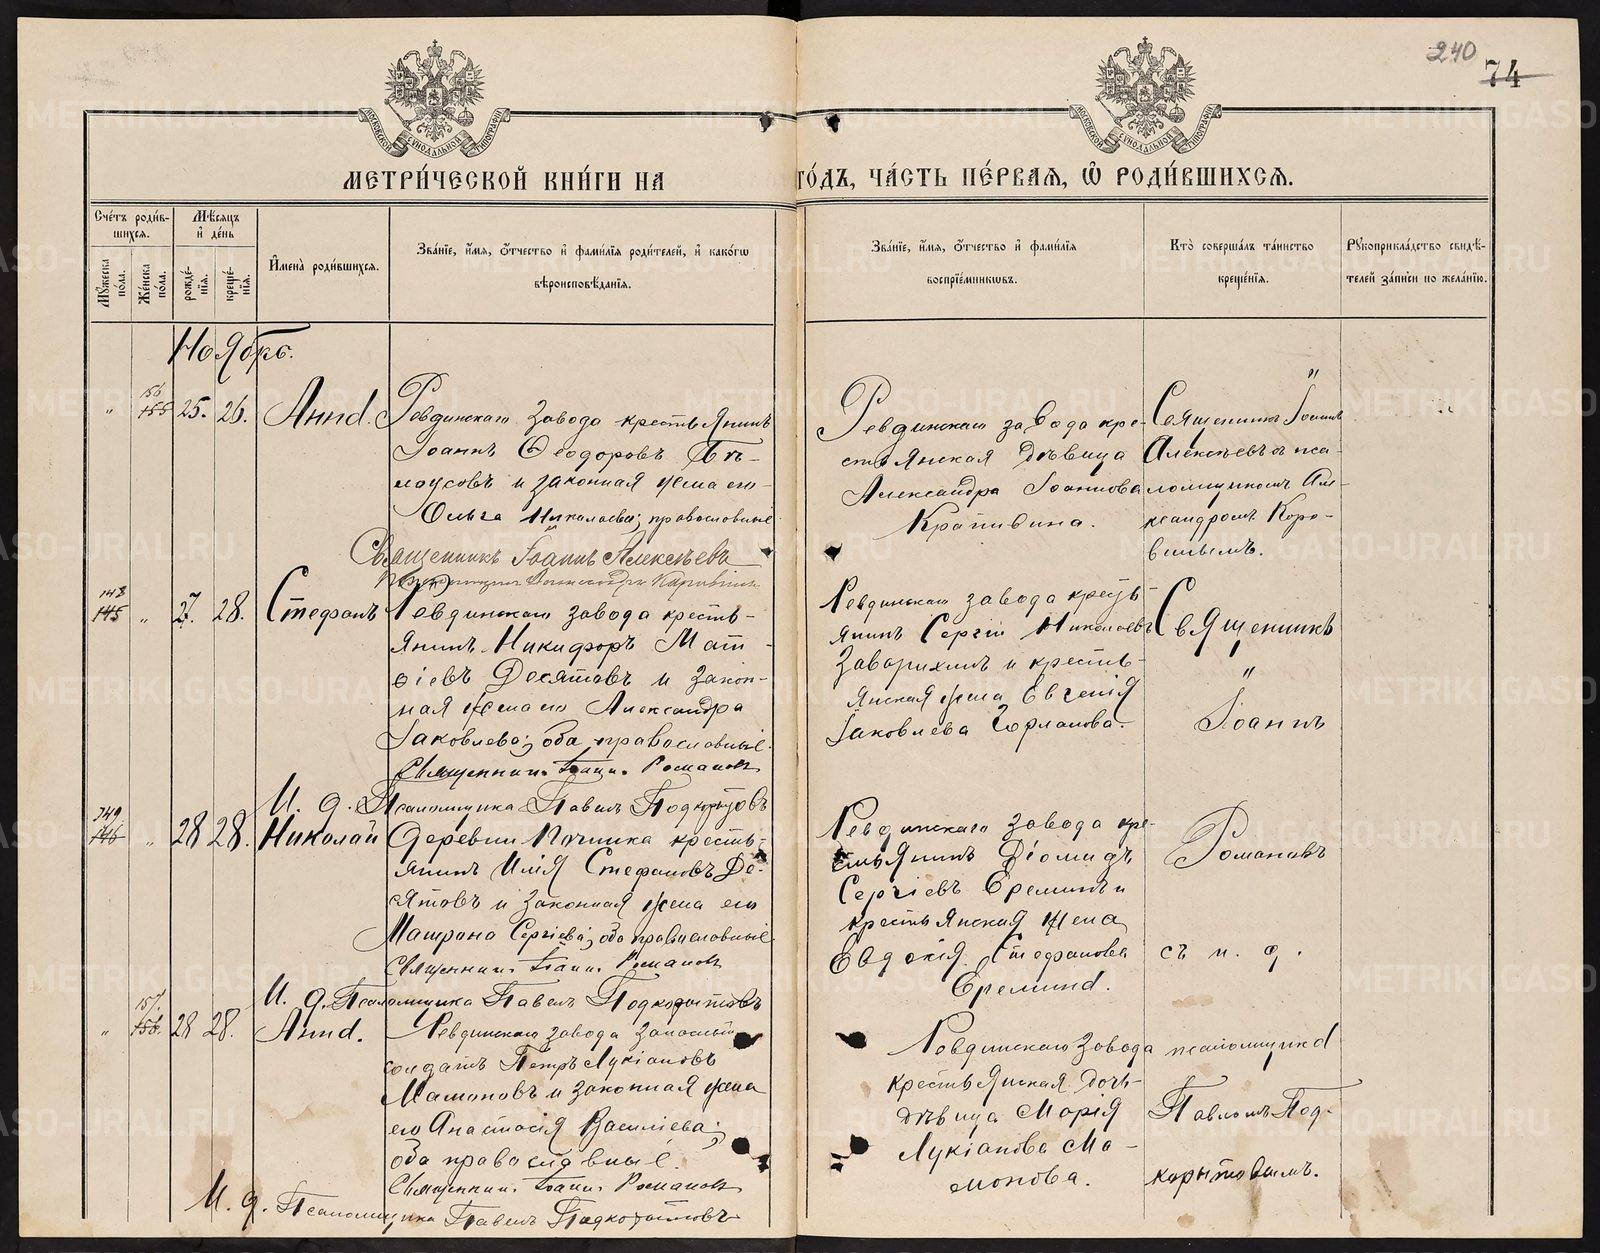 240
74
МОСКОВСКОЙ СѴНОДАЛЬНОЙ ТИПОГРАФІИ
МОСКОВСКОЙ СѴНОДАЛЬНОЙ ТИПОГРАФІИ
МЕТРИ́ЧЕСКОЙ КНИ́ГИ НА ГО́ДЪ, ЧА́СТЬ ПЕ́РВАѦ, Ѡ҆ РОДИ́ВШИХСѦ.
Сче́тъ роди́в-
шихсѧ.
Мꙋ́жеска по́ла.
Же́нска по́ла.
Мѣ́сѧцъ и҆ де́нь
рожде́-
нїѧ.
креще́-
нїѧ.
И҆мена̀ роди́вшихсѧ.
Зва́нїе, и҆́мѧ, ѻ҆́тчество и҆ фами́лїѧ роди́телей, и҆ како́гѡ
вѣроисповѣ́данїѧ.
Зва́нїе, и҆́мѧ, ѻ҆́тчество и҆ фами́лїѧ
воспрїе́мникѡвъ.
Кто̀ соверша́лъ та́инство
креще́нїѧ.
Рꙋкоприкла́дство свидѣ́-
телей за́писи по жела́нїю.
Ноябрь.
„ 156 155 25. 26. Анна. Ревдинскаго завода крестьянинъ
Іоаннъ Ѳеодоровъ Бѣ-
лоусовъ и законная жена его
Ольга Николаева; православные
Священникъ Іоаннъ Алексѣевъ
Ревдинскаго завода кре-
стьянская дѣвица
Александра Іоаннова
Крапивина.
Священникъ Іоаннъ
Алексѣевъ съ пса-
ломщикомъ Але-
ксандромъ Коро-
винымъ.
148 145 „ 27. 28. Стефанъ Ревдинскаго завода кресть-
янинъ Никифоръ Мат-
ѳіевъ Десятовъ и закон-
ная жена его Александра
Іаковлева; оба православные.
Священникъ Іоаннъ Романовъ
И. д. Псаломщика Павелъ Подкорытовъ
Ревдинскаго завода кресть-
янинъ Сергій Николаевъ
Заворихинъ и кресть-
янская жена Евгенія
Іаковлева
Священникъ
Іоаннъ
149 146 „ 28 28. Николай Деревни Починка кресть-
янинъ Илія Стефановъ Де-
сятовъ и законная жена его
Матрона Сергіева; оба православные.
Священникъ Іоаннъ Романовъ
И. д. Псаломщика Павелъ Подкорытовъ
Ревдинскаго завода кре-
стьянинъ Діомидъ
Сергіевъ Ереминъ и
крестьянская жена
Евдокія Стефанова
Еремина.
Романовъ
съ и. д.
„ 157. 156. 28 28. Анна. Ревдинскаго завода запасный
солдатъ Петръ Лукіановъ
Мамоновъ и законная жена
его Анастасія Василіева;
оба православные.
Священникъ Іоаннъ Романовъ
И. д. Псаломщика Павелъ Подкорытовъ
Ревдинскаго завода
крестьянская дочь-
дѣвица Марія
Лукіанова Ма-
монова.
псаломщика
Павломъ Под-
корытовымъ.